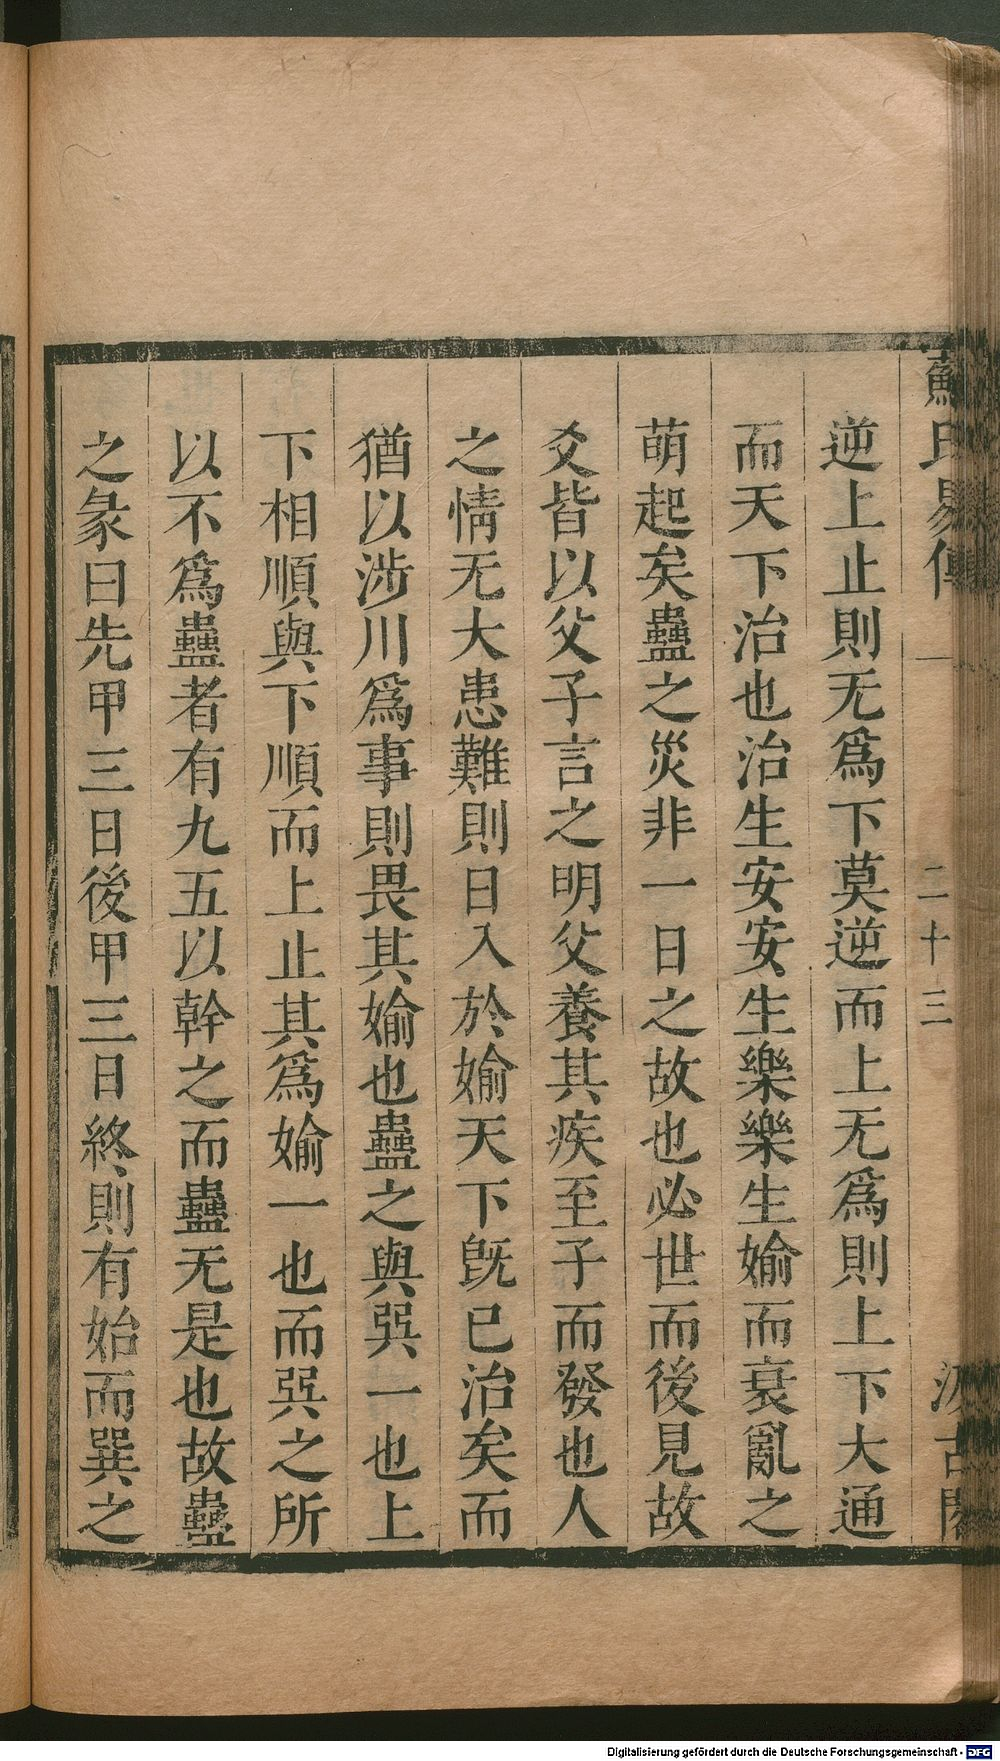 蘇氏易傳 一 二十三 汲古閣
逆上止則无爲下莫逆而上无爲則上下大通
而天下治也治生安安生樂樂生婾而衰亂之
萌起矣蠱之災非一日之故也必世而後見故
爻皆以父子言之明父養其疾至子而發也人
之情无大患難則日入於婾天下旣已治矣而
猶以涉川爲事則畏其婾也蠱之與巽一也上
下相順與下順而上止其爲婾一也而巽之所
以不爲蠱者有九五以幹之而蠱无是也故蠱
之彖曰先甲三日後甲三日終則有始而巽之
Digitalisierung gefördert durch die Deutsche Forschungsgemeinschaft - DFG